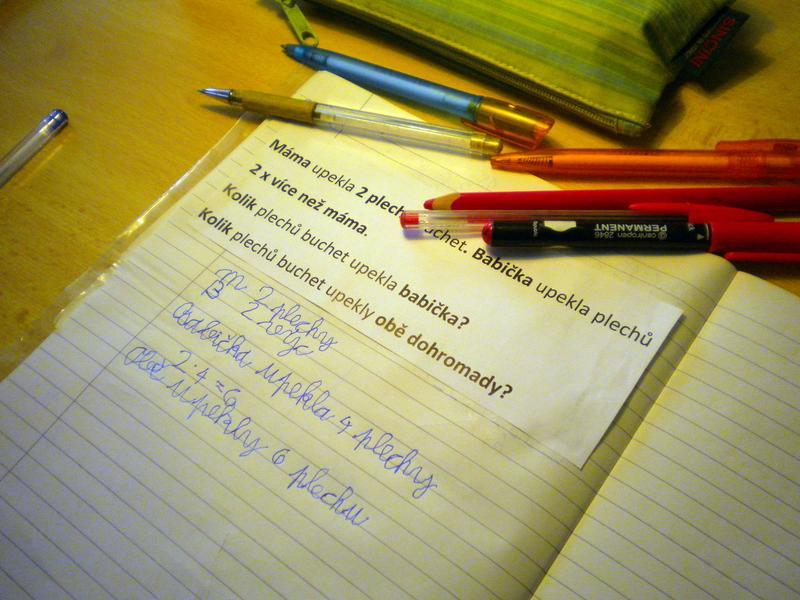 SUNCINI
Máma upekla 2 plech buchet. Babička upekla plechů
2 x více než máma.
Kolik plechů buchet upekla babička?
Kolik plechů buchet upekly obě dohromady?
centropen 2846
PERMANENT
m. 2 plechy
B 2 více
Babička upekla 4 plechy
2. 4 = 6
Obě upekly 6 plechu